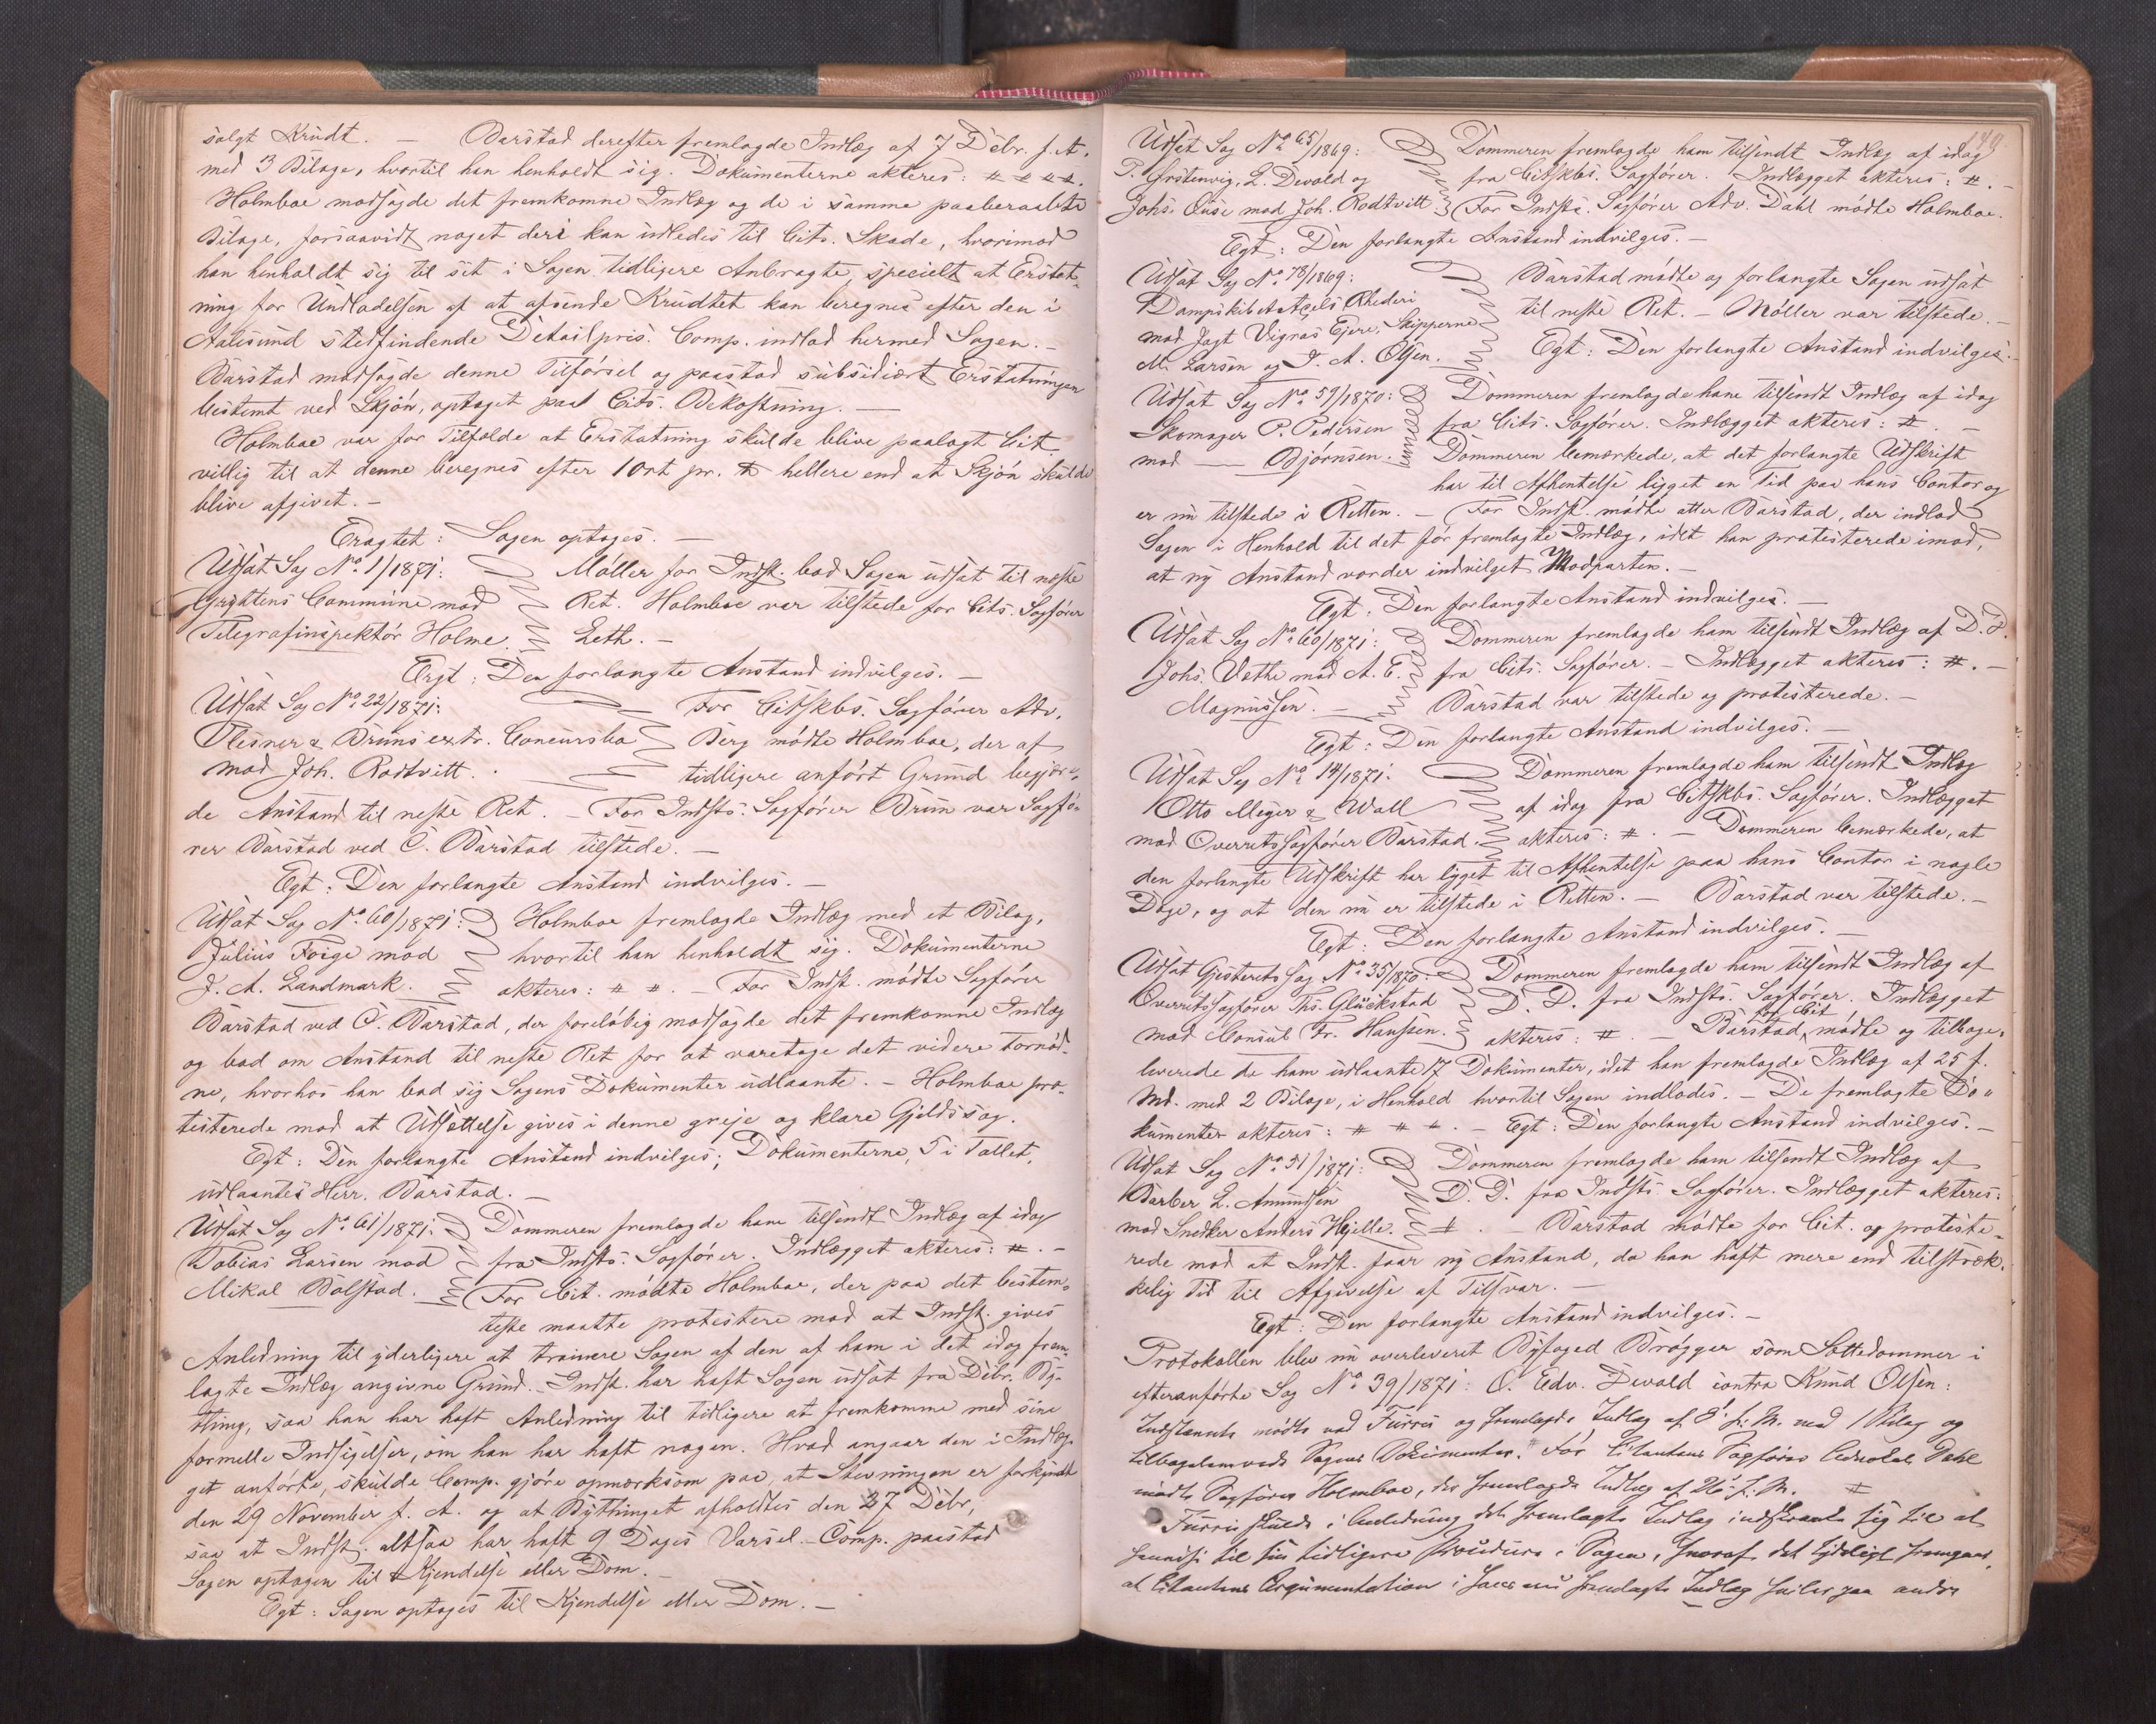 solgt Krudt. — Barstad derefter fremlagde Indlæg af 7 Debr. f. A.
med 3 Bilage, hvortil han henholdt sig. Dokumenterne akteres: # # # #.
Holmboe modsagde det fremkomne Indlæg og de i samme paaberaabte
Bilage, forsaavidt noget deri kan udledes til Cits. Skade, hvorimod
han henholdt sig til sit i Sagen tidligere Anbragte, specielt at Erstat-
ning for Undladelsen af at afsende Krudtet kan beregnes efter den i
Aalesund stedfindende Detailpris. Comp. indlod hermed Sagen. —
Barstad modsagde denne Tilførsel og paastod subsidiært Erstatningen
bestemt ved Skjøn, optaget paa Cits. Bekostning. —
Holmboe var for Tilfælde at Erstatning skulde blive paalagt Cit.
villig til at denne beregnes efter 1 ort pr. ℔ hellere end at Skjøn skulde
blive afgivet. —
Eragtet: Sagen optages. —
Udsat Sag No. 1/1871:
Gryttens Commune mod
Telegrafinspektør Holme.
Møller for Indst. bad Sagen udsat til næste
Ret. Holmboe var tilstede for Cits. Sagfører
Leth. —
Ergt: Den forlangte Anstand indvilges. —
Udsat Sag No. 22/1871:
Plesner & Bruns extr. Concursbo
mod Joh. Rodtvitt.
For Citskbs. Sagfører Adv.
Berg mødte Holmboe, der af
tidligere anført Grund begjære-
de Anstand til neste Ret. — For Indsts. Sagfører Brun var Sagfø-
rer Barstad ved C. Barstad tilstede. —
Egt: Den forlangte Anstand indvilges. —
Udsat Sag No. 60/1871:
Julius Foige mod
J. A. Landmark.
Holmboe fremlagde Indlæg med et Bilag,
hvortil han henholdt sig. Dokumenterne
akteres: # #. — For Indst. mødte Sagfører
Barstad ved C. Barstad, der foreløbig modsagde det fremkomne Indlæg
og bad om Anstand til neste Ret for at varetage det videre Fornød-
ne, hvorhos han bad sig Sagens Dokumenter udlaante. — Holmboe pro-
testerede mod at Udsættelse gives i denne greje og klare Gjeldssag.
Egt: Den forlangte Anstand indvilges; Dokumenterne, 5 i Tallet,
udlaantes Herr. Barstad. —
Udsat Sag No. 61/1871:
Tobias Larsen mod
Mikal Bolstad.
Dommeren fremlagde ham tilsendt Indlæg af idag
fra Indsts. Sagfører. Indlægget akteres: #. —
For Cit. mødte Holmboe, der paa det bestem-
teste maatte protestere mod at Indst. gives
Anledning til yderligere at trainere Sagen af den af ham i det idag frem-
lagte Indlæg angivne Grund. Indst. har haft Sagen udsat fra Debr. By-
thing, saa han har haft Anledning til tidligere at fremkomme med sine
formelle Indsigelser, om han har haft nogen. Hvad angaar den i Indlæg-
get anførte, skulde Comp. gjøre opmærksom paa, at Stevningen er forkyndt
den 29 November f. A. og at Bythinget afholdtes den 7 Debr,
saa at Indst. altsaa har haft 9 Dages Varsel. Comp. paastod
Sagen optagen til Kjendelse eller Dom. —
Egt: Sagen optages til Kjendelse eller Dom. —
149.
Udsat Sag No. 65/1869:
P. Grötenvig, L. Devold og
Johs. Ouse mod Joh. Rodtvitt
Dommeren fremlagde ham tilsendt Indlæg af idag
fra Citskbs. Sagfører. Indlægget akteres: #. —
For Indsts. Sagfører Adv. Dahl mødte Holmboe.
Egt: Den forlangte Anstand indvilges. —
Udsat Sag No. 78/1869:
Dampskibet Axels Rhederi
mod Jagt Vigras Ejere, Skipperne
M. Larsen og J. A. Olsen.
Barstad mødte og forlangte Sagen udsat
til neste Ret. — Møller var tilstede. —
Egt: Den forlangte Anstand indvilges. —
Udsat Sag No. 59/1870:
Skomager P. Pedersen
mod — Bjørnsen.
Dommeren fremlagde ham tilsendt Indlæg af idag
fra Cits. Sagfører. Indlægget akteres: #. —
Dommeren bemærkede, at det forlangte Udskrift
har til Afhentelse ligget en Tid paa hans Contor og
er nu tilstede i Retten. — For Indst. mødte atter Barstad, der indlod
Sagen i Henhold til det før fremlagte Indlæg, idet han protesterede imod,
at ny Anstand vorder indvilget Modparten. —
Egt: Den forlangte Anstand indvilges. —
Udsat Sag No. 60/1871:
Johs. Vethe mod A. E.
Magnussen. —
Dommeren fremlagde ham tilsendt Indlæg af D. D.
fra Cits. Sagfører. — Indlægget akteres: #. —
Barstad var tilstede og protesterede. —
Egt: Den forlangte Anstand indvilges. —
Udsat Sag No. 14/1871:
Otto Meyer & Wall
mod Overretssagfører Barstad.
Dommeren fremlagde ham tilsendt Indlæg
af idag fra Citskbs. Sagfører. Indlægget
akteres: #. — Dommeren bemærkede, at
den forlangte Udskrift har ligget til Afhentelse paa hans Contor i nogle
Dage, og at den nu er tilstede i Retten. — Barstad var tilstede. —
Egt: Den forlangte Anstand indvilges. —
Udsat Gjesterets Sag No. 35/1870:
Overretssagfører Ths. Glückstad
mod Consul Fr. Hanssen.
Dommeren fremlagde ham tilsendt Indlæg af
D. D. fra Indsts. Sagfører. Indlægget
akteres: #. — Barstad for Cit mødte og tilbage-
leverede de ham udlaante 17 Dokumenter, idet han fremlagde Indlæg af 25 f.
Md. med 2 Bilage, i Henhold hvortil Sagen indlodes. — De fremlagte Do-
kumenter akteres: # # #. — Egt: Den forlangte Anstand indvilges. —
Udsat Sag No. 51/1871:
Barber L. Amundsen
mod Snedker Anders Hjelle.
Dommeren fremlagde ham tilsendt Indlæg af
D. D. fra Indsts. Sagfører. Indlægget akteres:
#. — Barstad mødte for Cit. og proteste-
rede mod at Indst. faar ny Anstand, da han haft mere end tilstræk-
kelig Tid til Afgivelse af Tilsvar. —
Egt: Den forlangte Anstand indvilges. —
Protokollen blev nu overleveret Byfoged Brøgger som Sættedommer i
efteranførte Sag No. 39/1871: O. Edv. Devold contra Knud Olsen:
Indstevnte mødte ved Furris og fremlagde Indlæg af 8' f. M. med 1 Bilag og
tilbageleverede Sagens Dokumenter. For Citantens Sagfører Advokat Dahl
mødte Sagfører Holmboe, der fremlagde Indlæg af 26' f. M. #
Furris skulde i Anledning det fremlagte Indlæg indskrænke sig til at
henvise til sin tidligere Procedure i Sagen, hvoraf det tydeligt fremgaar,
at Citantens Argumentation i hans nu fremlagte Indlæg hviler paa andre